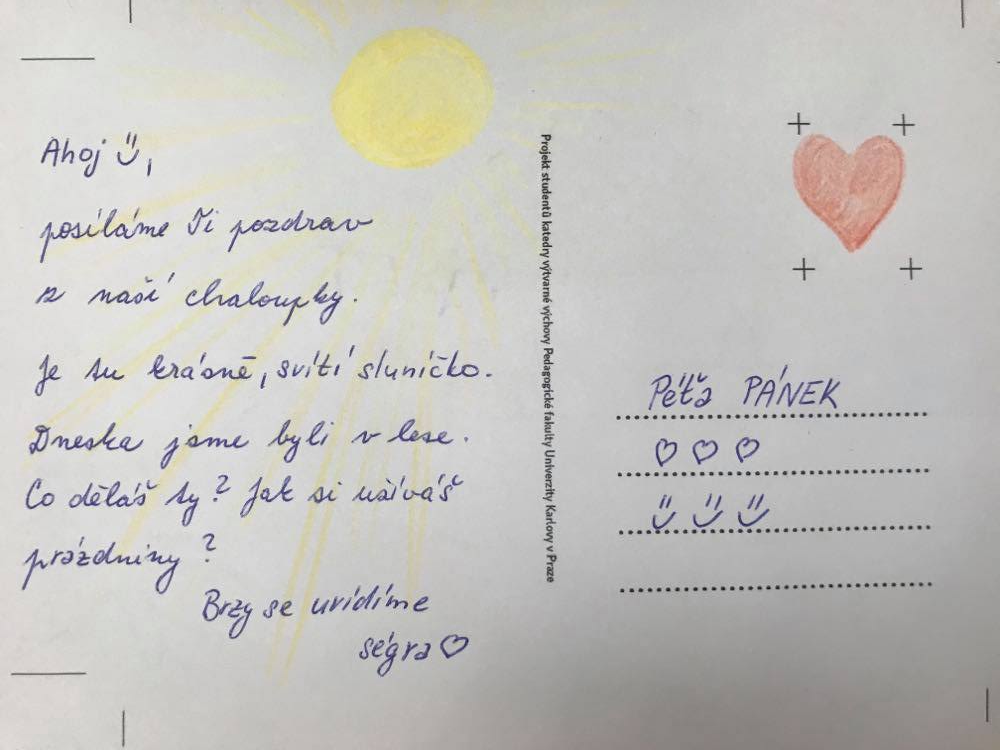 Ahoj ,
posíláme Ti pozdrav
z naší chaloupky.
Je tu krásně, svítí sluníčko.
Dneska jsme byli v lese.
Co děláš ty? Jak si užíváš
prázdniny?
Brzy se uvidíme
ségra♡
Projekt studentů katedry výtvarné výchovy Pedagogické fakulty Univerzity Karlovy v Praze
Péťa PÁNEK
♡ ♡ ♡